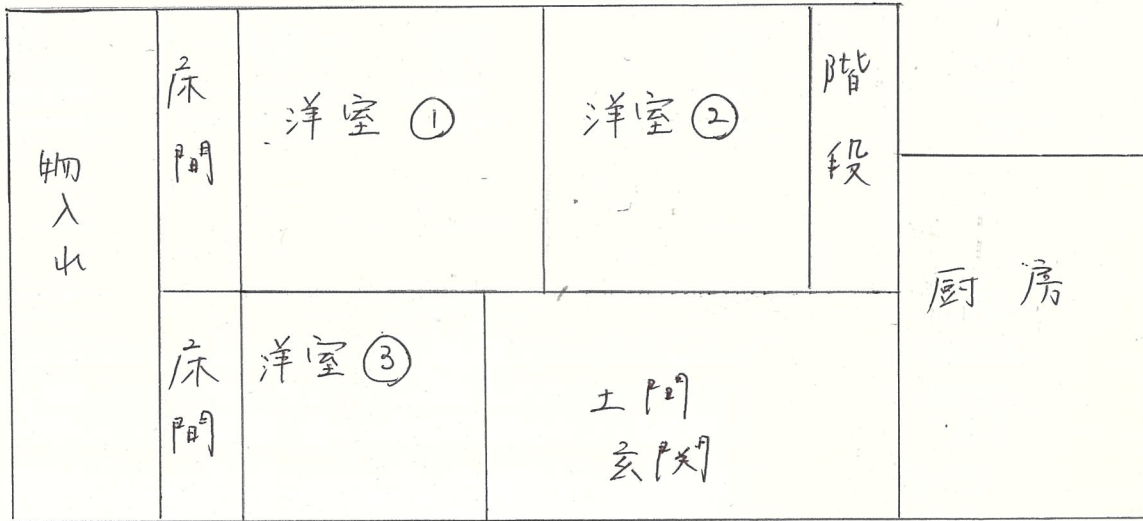 物入れ
床間
洋室 ①
洋室 ②
階段
厨房
床間
洋室 ③
土間
玄関